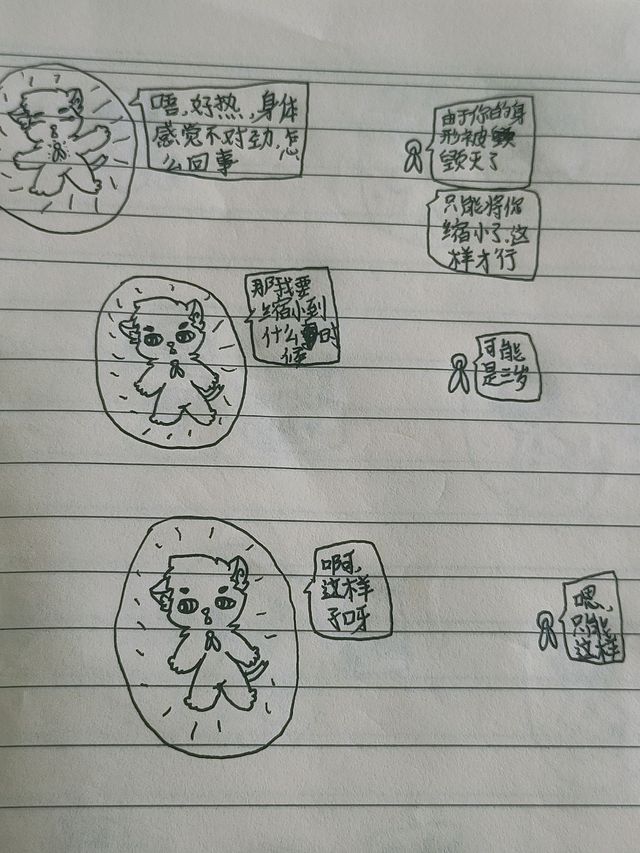 唔,好热,身体
感觉不对劲,怎
么回事
由于你的身
形被
毁灭了
只能将你
缩小了,这
样才行
那我要
缩小到
什么时
候
可能
是三岁
啊,
这样
子呀
嗯,
只能
这样